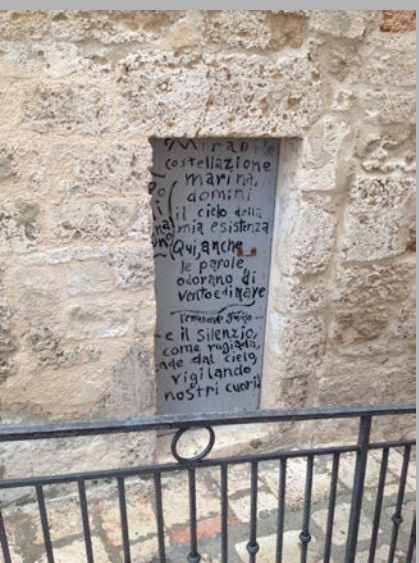 Mirabile
costellazione
marina,
domini
il cielo della
mia esistenza
Qui, anche
le parole
odorano di
vento e di mare
e il silenzio,
come rugiada,
cade dal cielo,
vigilando
nostri cuori